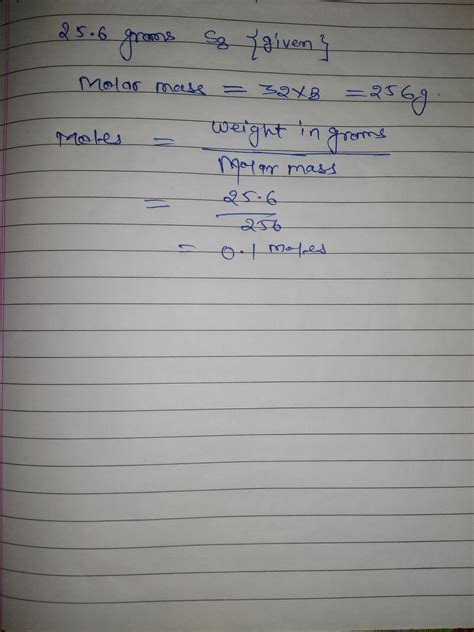 25.6 grams S8 {given}
Molar mass = 32×8 = 256g.
Moles = weight in grams
Molar mass
= 25.6
256
= 0.1 moles